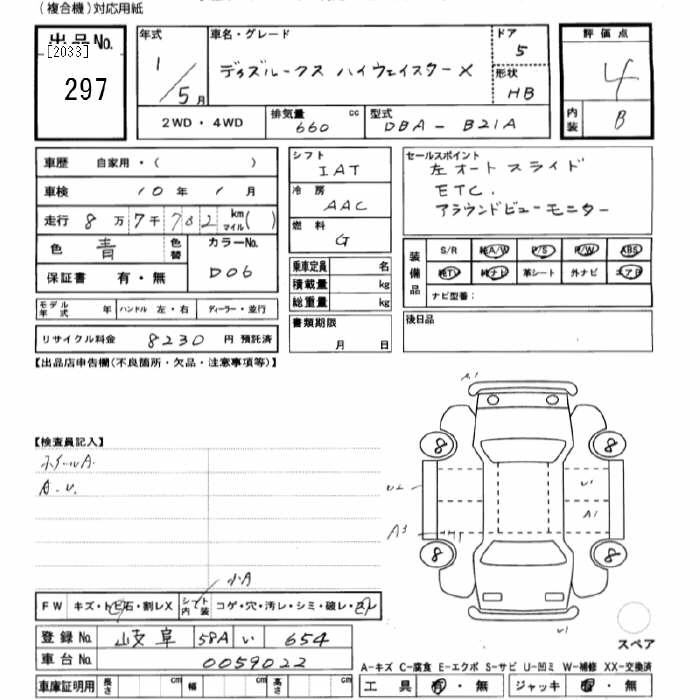 (複合機)対応用紙
出品No.
[2033]
297
年式
1/5月
車名・グレード
デイズルークス ハイウェイスターX
ドア
5
形状
HB
評価点
4
内装
B
2WD・4WD
排気量 660 cc
型式 DBA-B21A
車歴 自家用・( )
車検 10年1月
走行 8万7千782km マイル( )
色 青 色替
カラーNo.
D06
保証書 有・無
シフト
IAT
冷房
AAC
燃料
G
乗車定員 名
積載量 kg
総重量 kg
セールスポイント
左オートスライド
ETC.
アラウンドビューモニター
装備品
S/R 純A/W P/S P/W ABS
純TV 純ナビ 革シート 外ナビ エアB
ナビ型番:
モデル年式 年 ハンドル 左・右 ディーラー・並行
リサイクル料金 8230 円 預託済
書類期限
月 日
後日品
【出品店申告欄(不良箇所・欠品・注意事項等)】
【検査員記入】
ホイールA.
A.U.
A1
8 8
U2 U1
A1
A3
8 8
U1
小A
FW キズ・トビ石・割レX
シート内装 コゲ・穴・汚レ・シミ・破レ・
スペア
登録No. 岐阜 58A い 654
車台No. 0059022
A-キズ C-腐食 E-エクボ S-サビ U-凹ミ W-補修 XX-交換済
車庫証明用 長さ cm 幅 cm 高さ cm
工具 有・無 ジャッキ 有・無